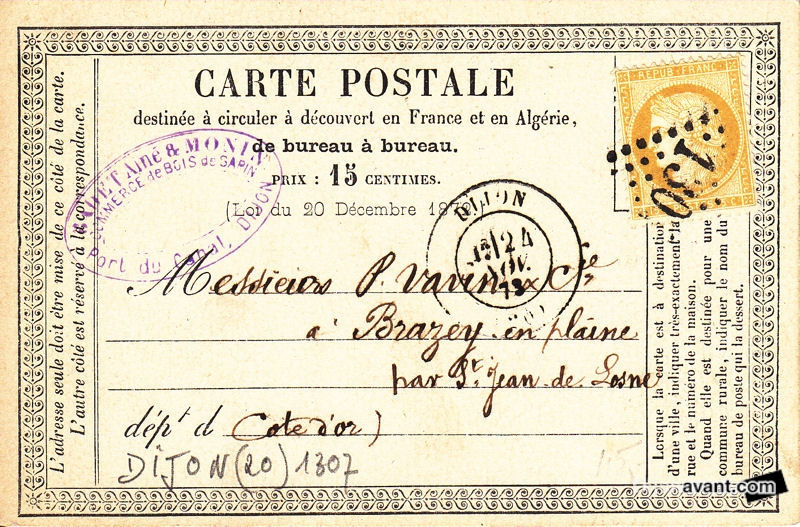 CARTE POSTALE
destinée à circuler à découvert en France et en Algérie,
de bureau à bureau.
PRIX : 15 CENTIMES.
(Loi du 20 Décembre 1872)
REPUB FRANC
1307
Aîné & MONIN
COMMERCE de BOIS de SAPIN
Port du Canal, DIJON
DIJON
24
NOV.
73
(20)
Messieurs P. Vavin & Cie
à Brazey en plaine
par St. Jean de Losne
dépt d Cote d'or)
DIJON (20) 1307
L'adresse seule doit être mise de ce côté de la carte.
L'autre côté est réservé à la correspondance.
Lorsque la carte est à destination
d'une ville, indiquer très-exactement la
rue et le numéro de la maison.
Quand elle est destinée pour une
commune rurale, indiquer le nom du
bureau de poste qui la dessert.
avant.com